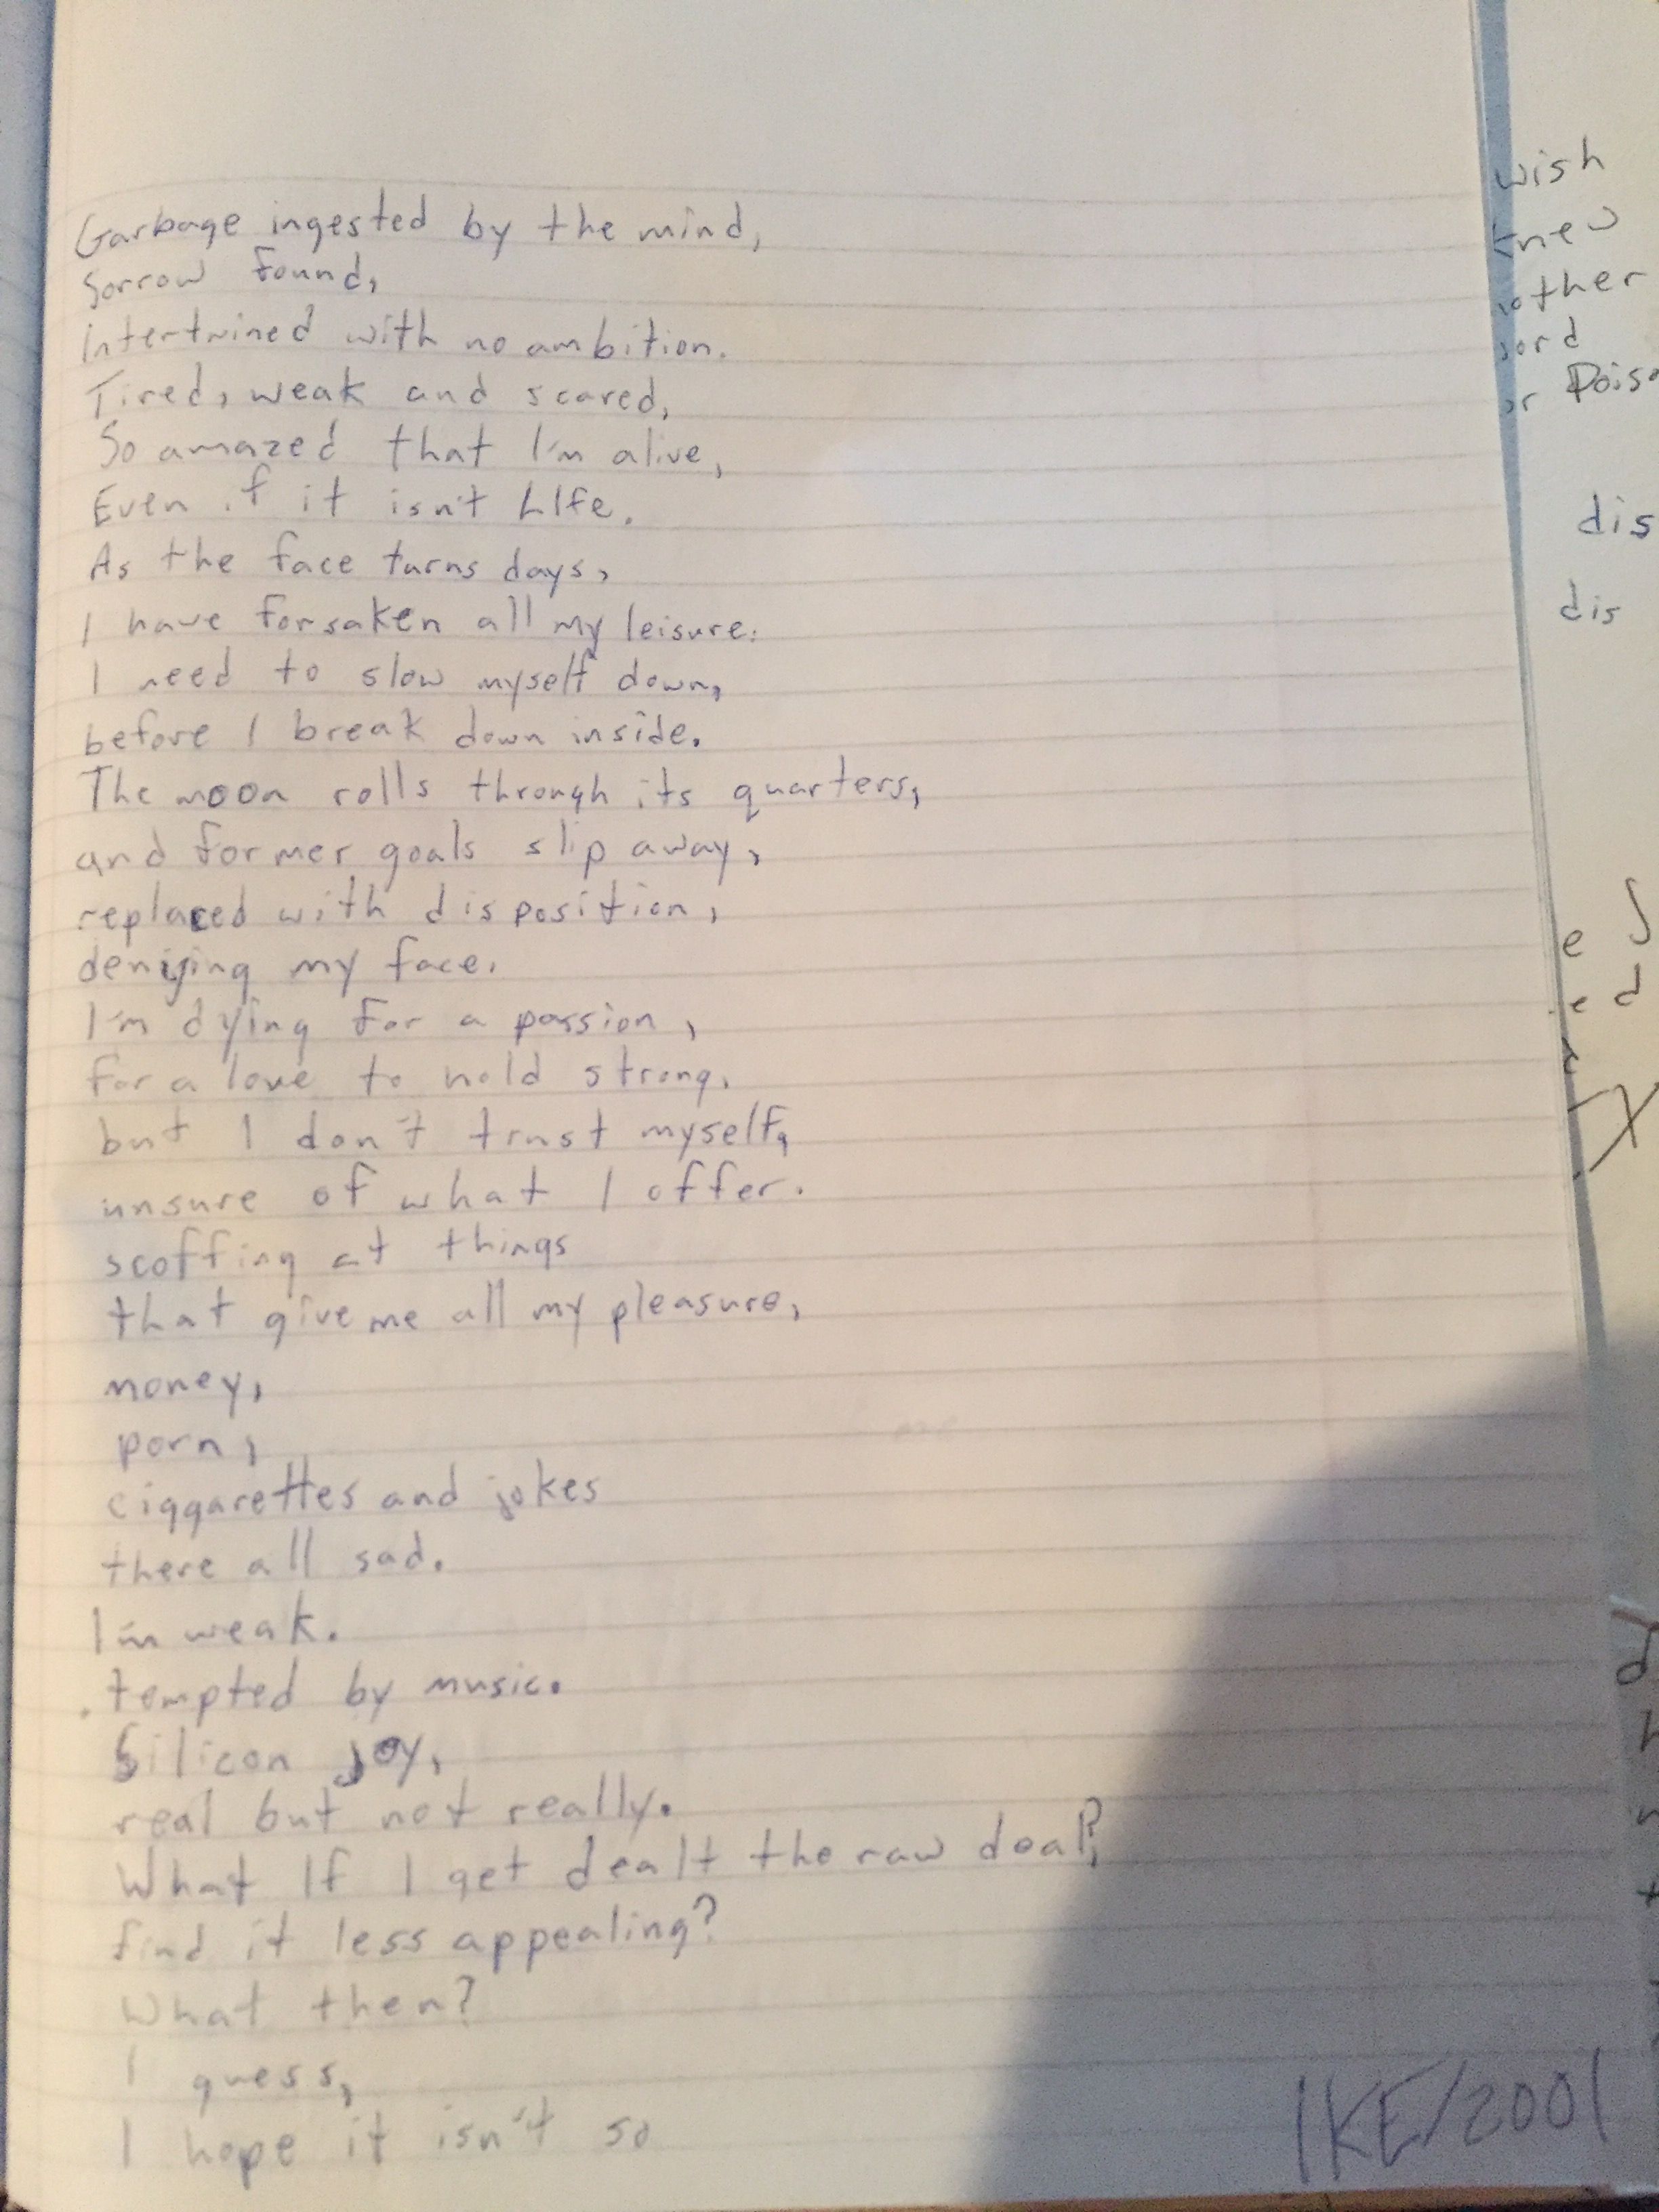 Garbage ingested by the mind,
Sorrow found,
intertwined with no ambition.
Tired, weak and scared,
So amazed that I'm alive,
Even if it isn't LIfe.
As the face turns days,
I have forsaken all my leisure.
I need to slow myself down,
before I break down inside.
The moon rolls through its quarters,
and former goals slip away,
replaced with disposition,
denying my face.
I'm dying for a passion,
for a love to hold strong.
but I don't trust myself,
unsure of what I offer.
scoffing at things
that give me all my pleasure,
money,
porn,
ciggarettes and jokes
there all sad.
I'm weak.
tempted by music.
Silicon joy,
real but not really.
What If I get dealt the raw deal?
find it less appealing?
What then?
I guess,
I hope it isn't so
IKE/2001
wish
knew
other
dis
dis